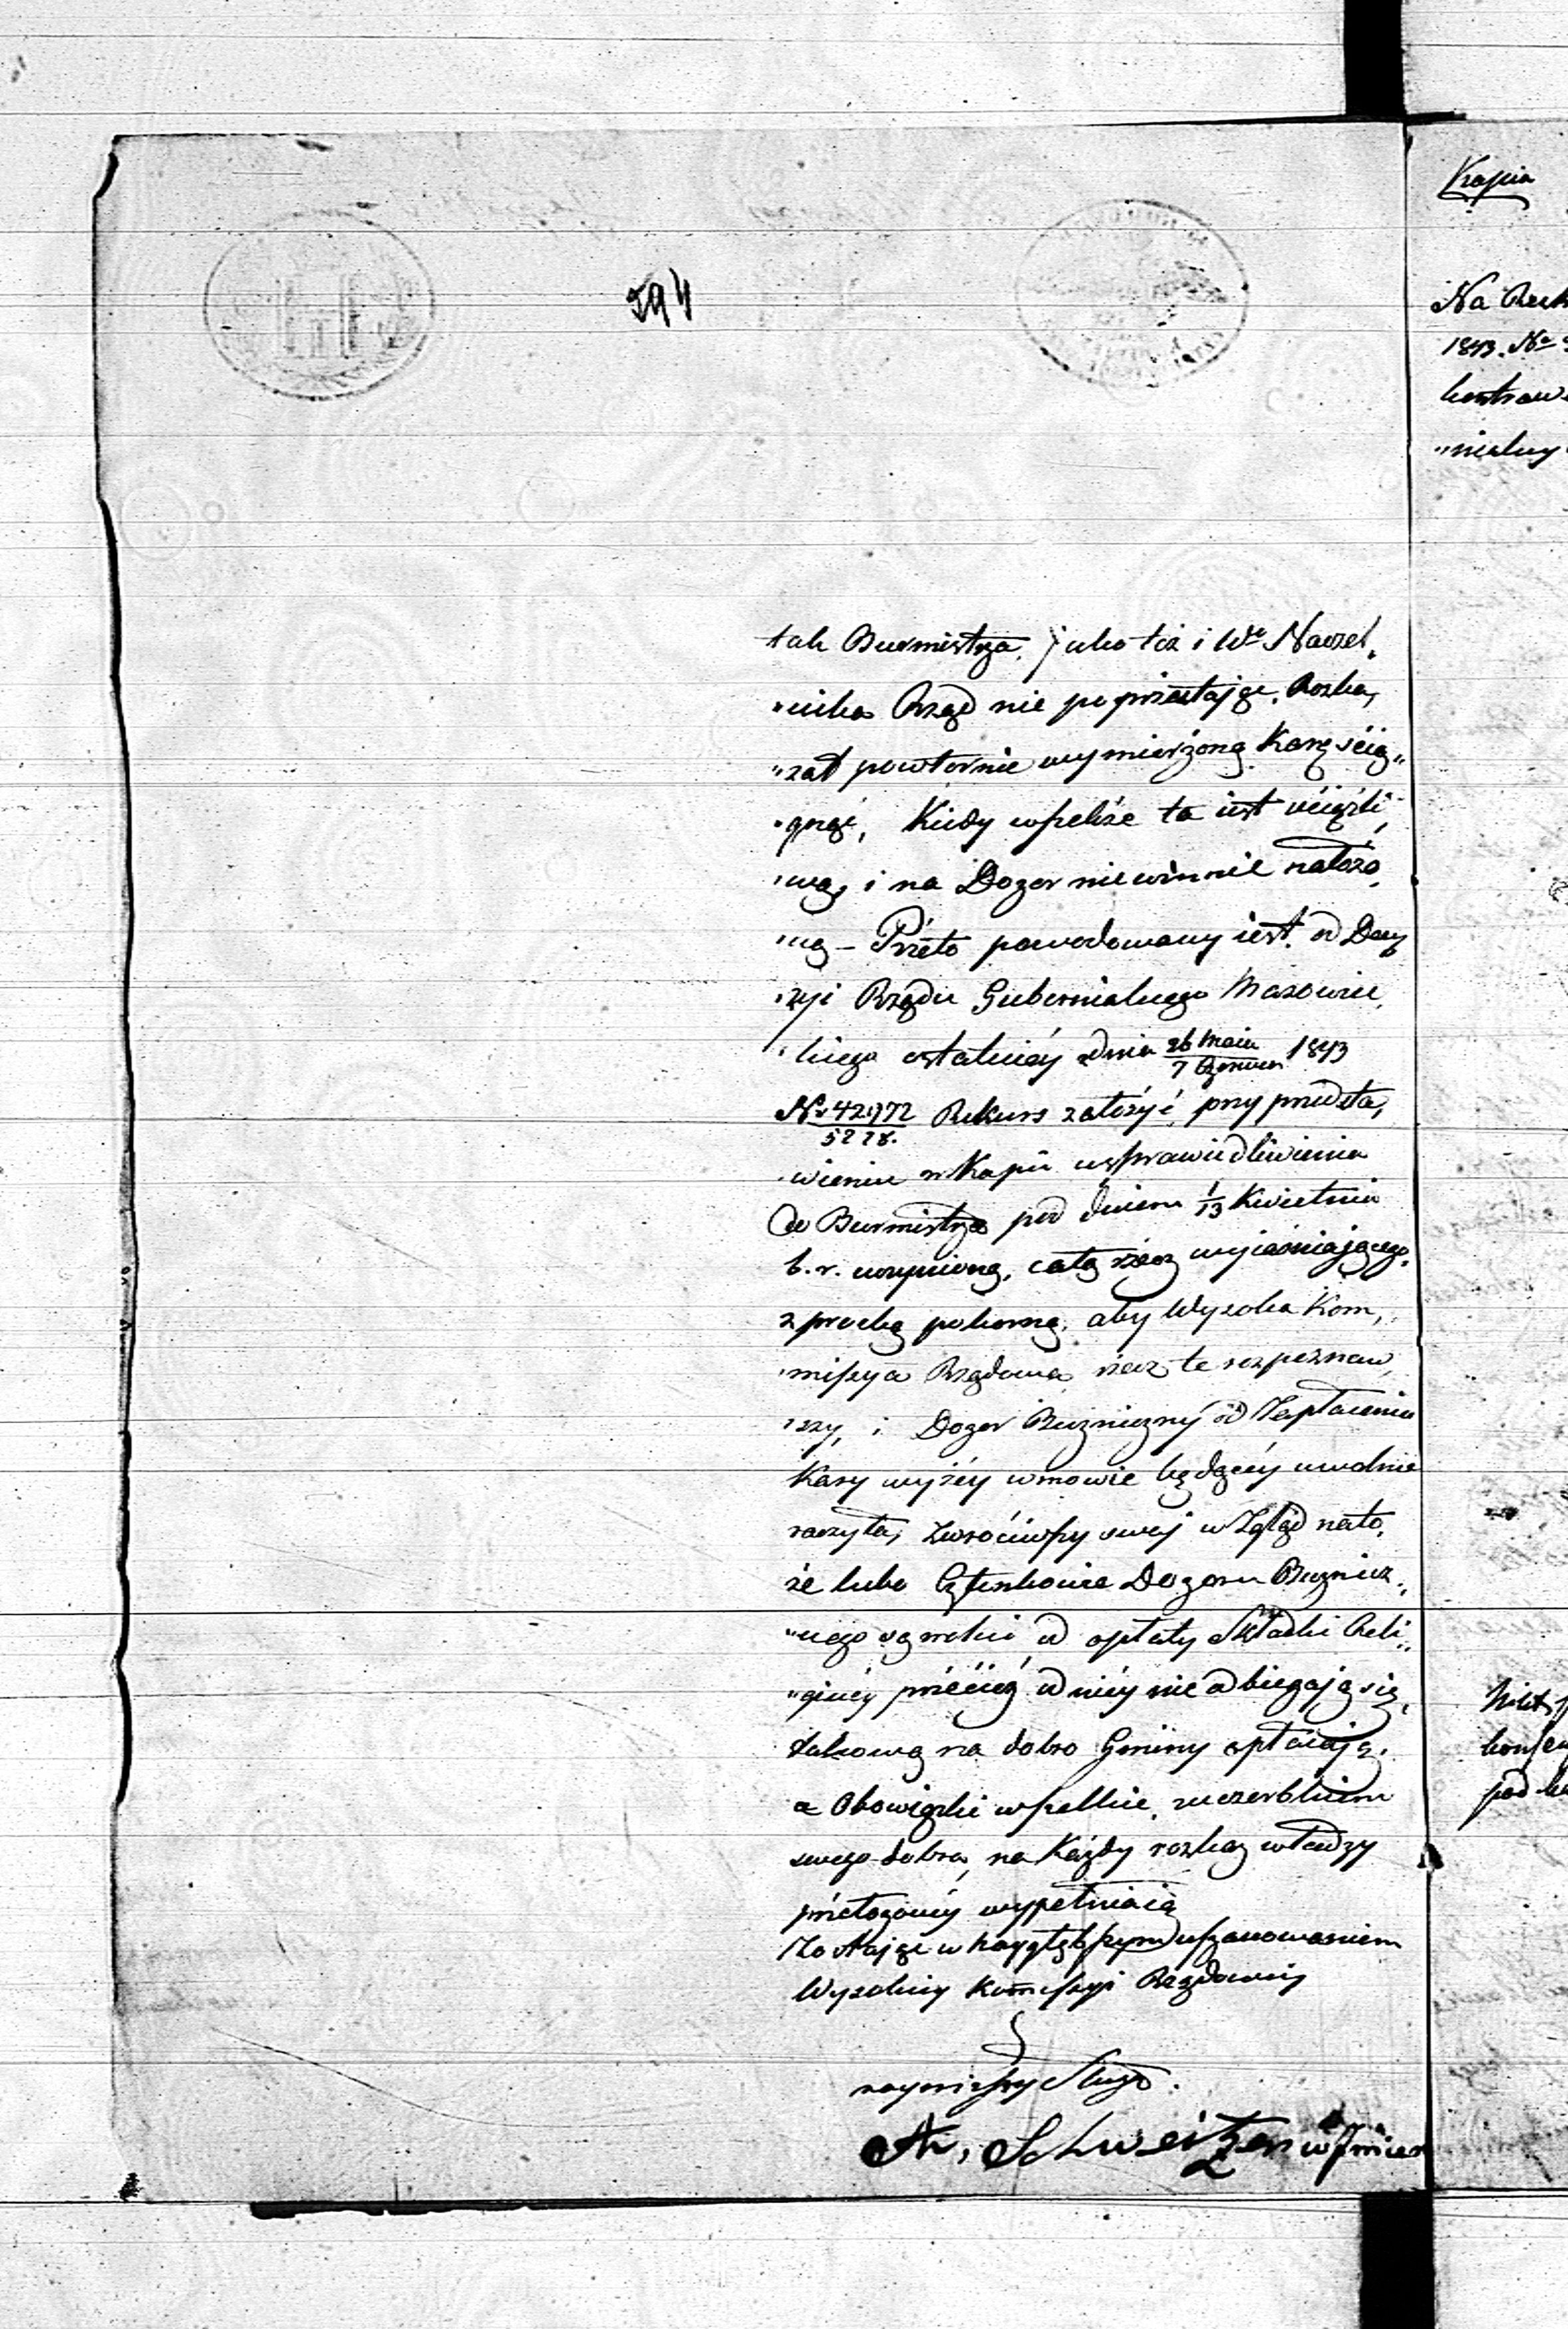 294
tak Burmistrza, jako też i We Naczel„
„nika Rząd nie poprzestając, Rozka„
„zał powtornie wymierżoną Karę ścią„
„gnąć, Kiedy wszelże ta iest uciążli„
„wą, i na Dozor niewinnie nałożo„
„ną – Przeto powodowany iest od Decy
„zyi Rządu Gubernialnego Mazowiec„
„kiego ostatniéy z dnia 26 Maia / 7 Czerwca 1843
No 42972 / 5278. Rekurs założyć, przy przedsta„
„wieniu w Kopii usprawiedliwienia
do Burmistrza pod dniem 1/13 Kwietnia
b. r. uczynioną, całą rzecz wyiaśniającego,
z prozbą pokorną, aby Wysoka Kom„
„missya Rządowa, rzecz te rozpoznaw„
„szy, i Dozor Bużniczny od Zapłacenia
Kary wyżéy w mowie będącéy uwolnić
raczyła, zwrociwszy swoj wzgląd na to,
że lubo Członkowie Dozoru Bużnicz„
„nego są wolni od opłaty Składki Reli„
„giinéy przécież od niéy nie odbiegają się,
takową na dobro Gminy opłacają,
a Obowiązki wszelkie, z uszczerbkiem
swego dobra, na Każdy rozkaz władzy
przełożonéy wypełniaią
Zostając w naygłębszym uszanowaniem
Wysokiéy Komissyi Rządowéy
nayniższy Sługa.
Schweitzer
Kopia
Na
1843. No